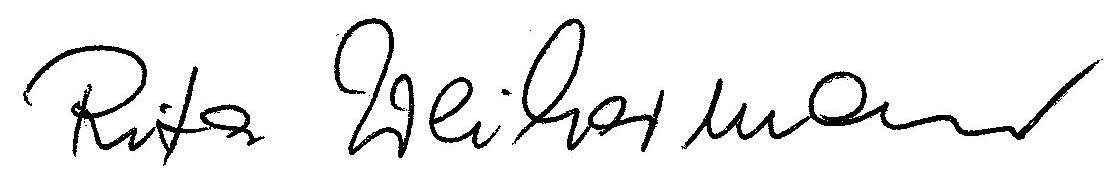 Rita Weihermann